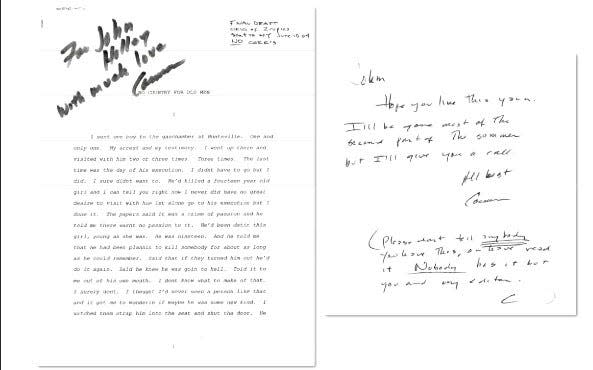 For John
Miller
With much love
Cormac
FINAL DRAFT
NO COUNTRY FOR OLD MEN
I
I sent one boy to the gaschamber at Huntsville. One and
only one. My arrest and my testimony. I went up there and
visited with him two or three times. Three times. The last
time was the day of his execution. I didnt have to go but I
did. I sure didnt want to. He'd killed a fourteen year old
girl and I can tell you right now I never did have no great
desire to visit with him let alone go to his execution but I
done it. The papers said it was a crime of passion and he
told me there wasnt no passion to it. He'd been datin this
girl, young as she was. He was nineteen. And he told me
that he had been plannin to kill somebody for about as long
as he could remember. Said that if they turned him out he'd
do it again. Said he knew he was goin to hell. Told it to
me out of his own mouth. I dont know what to make of that.
I surely dont. I thought I'd never seen a person like that
and it got me to wonderin if maybe he was some new kind. I
watched them strap him into the seat and shut the door. He
1
John
Hope you like this yarn.
I'll be gone most of the
second part of the summer
but I'll give you a call
All best
Cormac
(Please dont tell anybody
you have this, or have read
it Nobody has it but
you and my editor.
C )